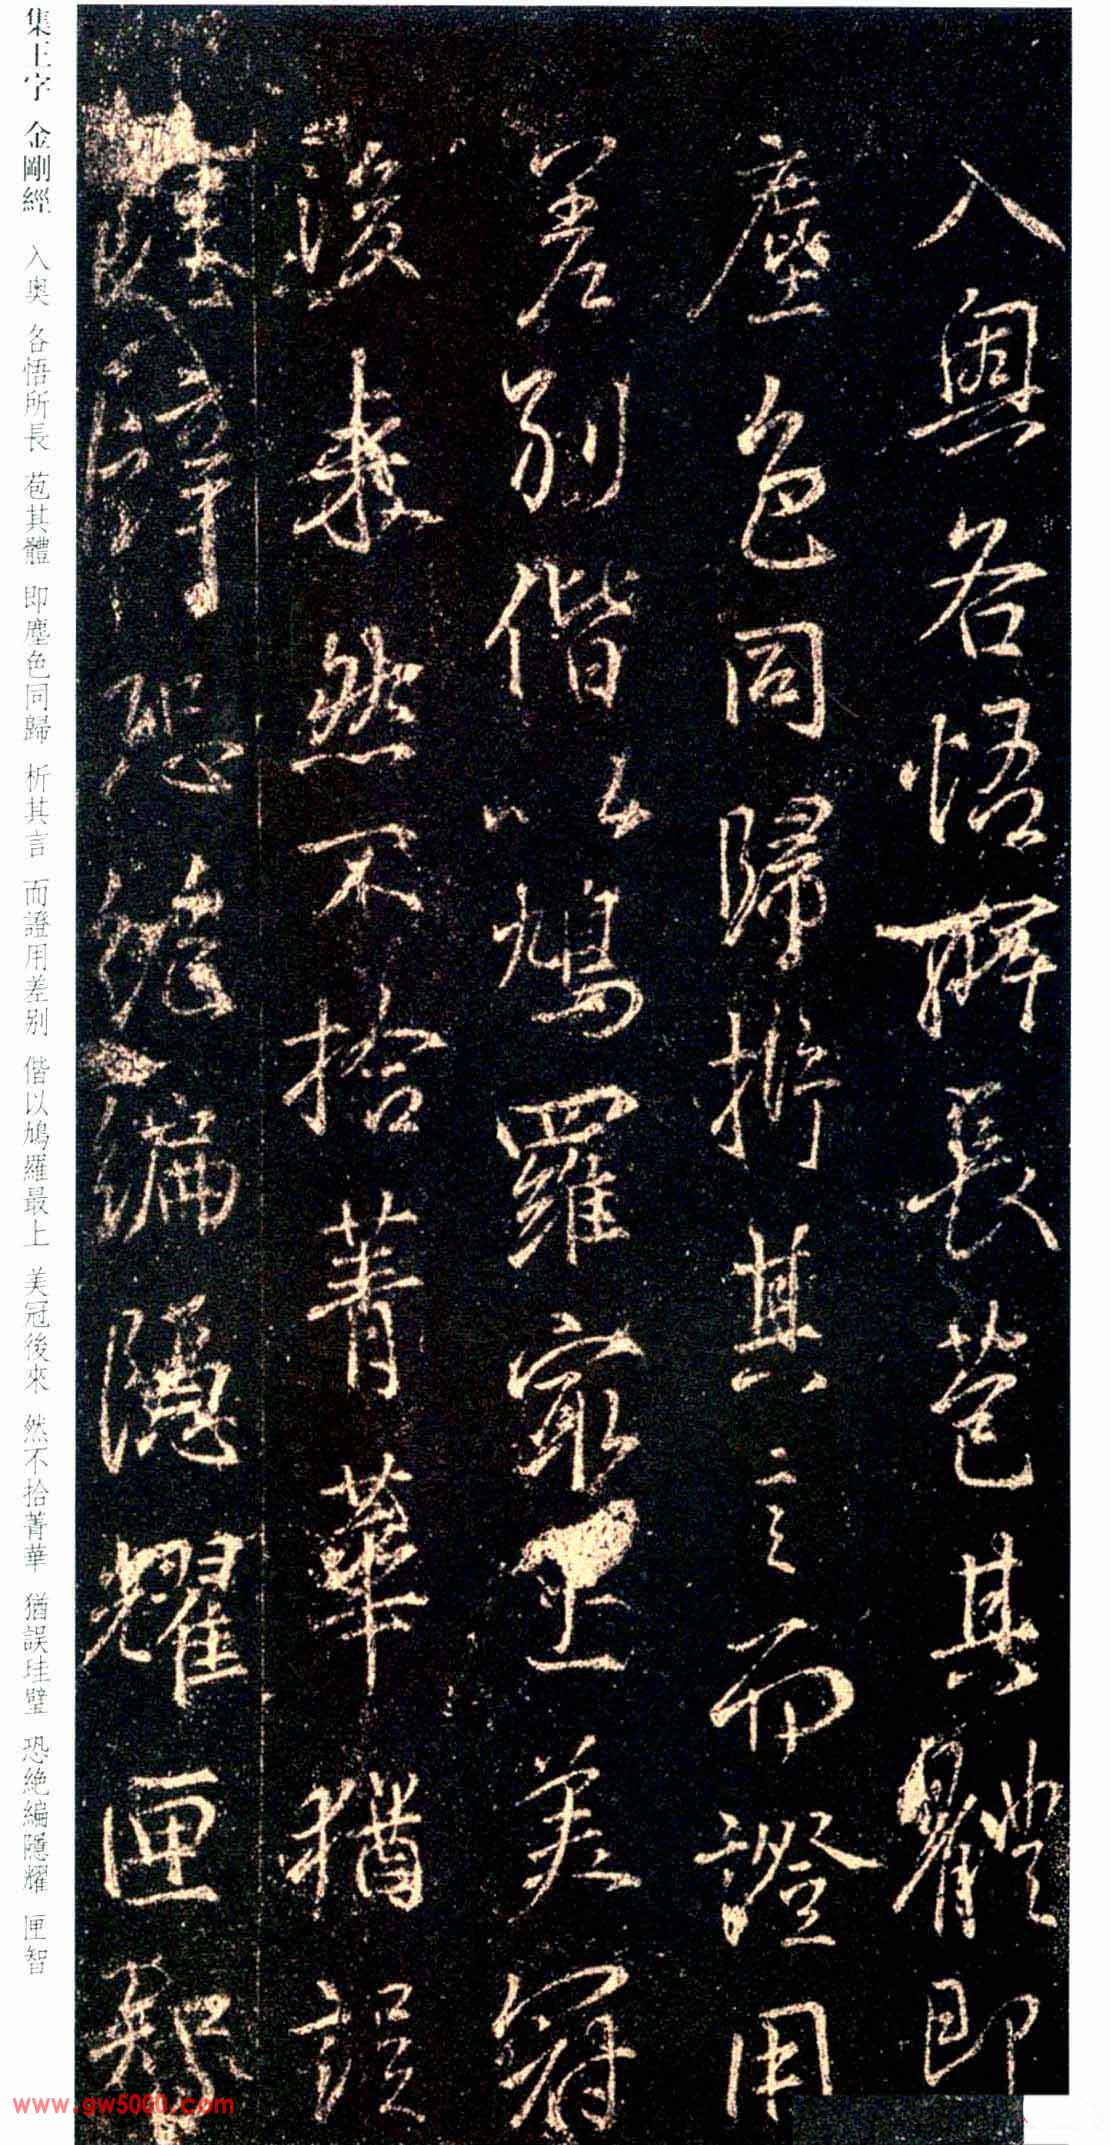 入奧各悟解長苞其體即
塵色同歸析其言而證用
差別偕以鳩羅最上美冠
後來然不拾菁華猶誤
珪璋恐絕編隱耀匣智
集王字 金剛經 入奥 各悟所長 苞其體 即塵色同歸 析其言 而證用差别 偕以鳩羅最上 美冠後來 然不拾菁華 猶誤珪璧 恐絶編隱耀 匣智
www.gw5000.com